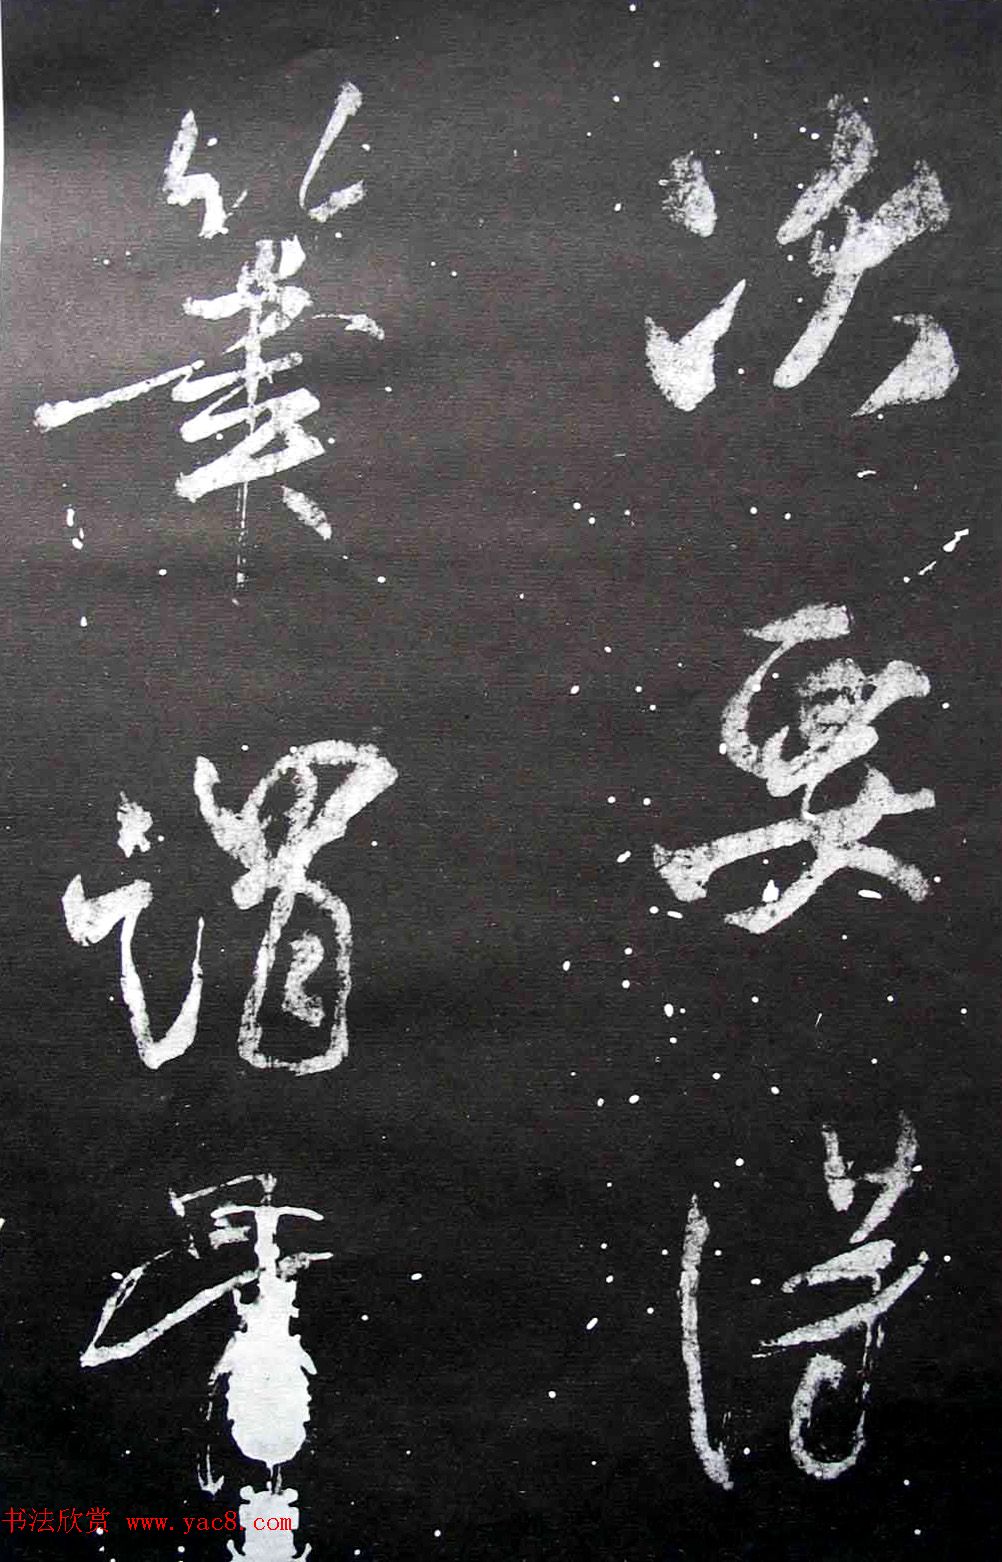 次要得
筆謂骨
书法欣赏 www.yac8.com